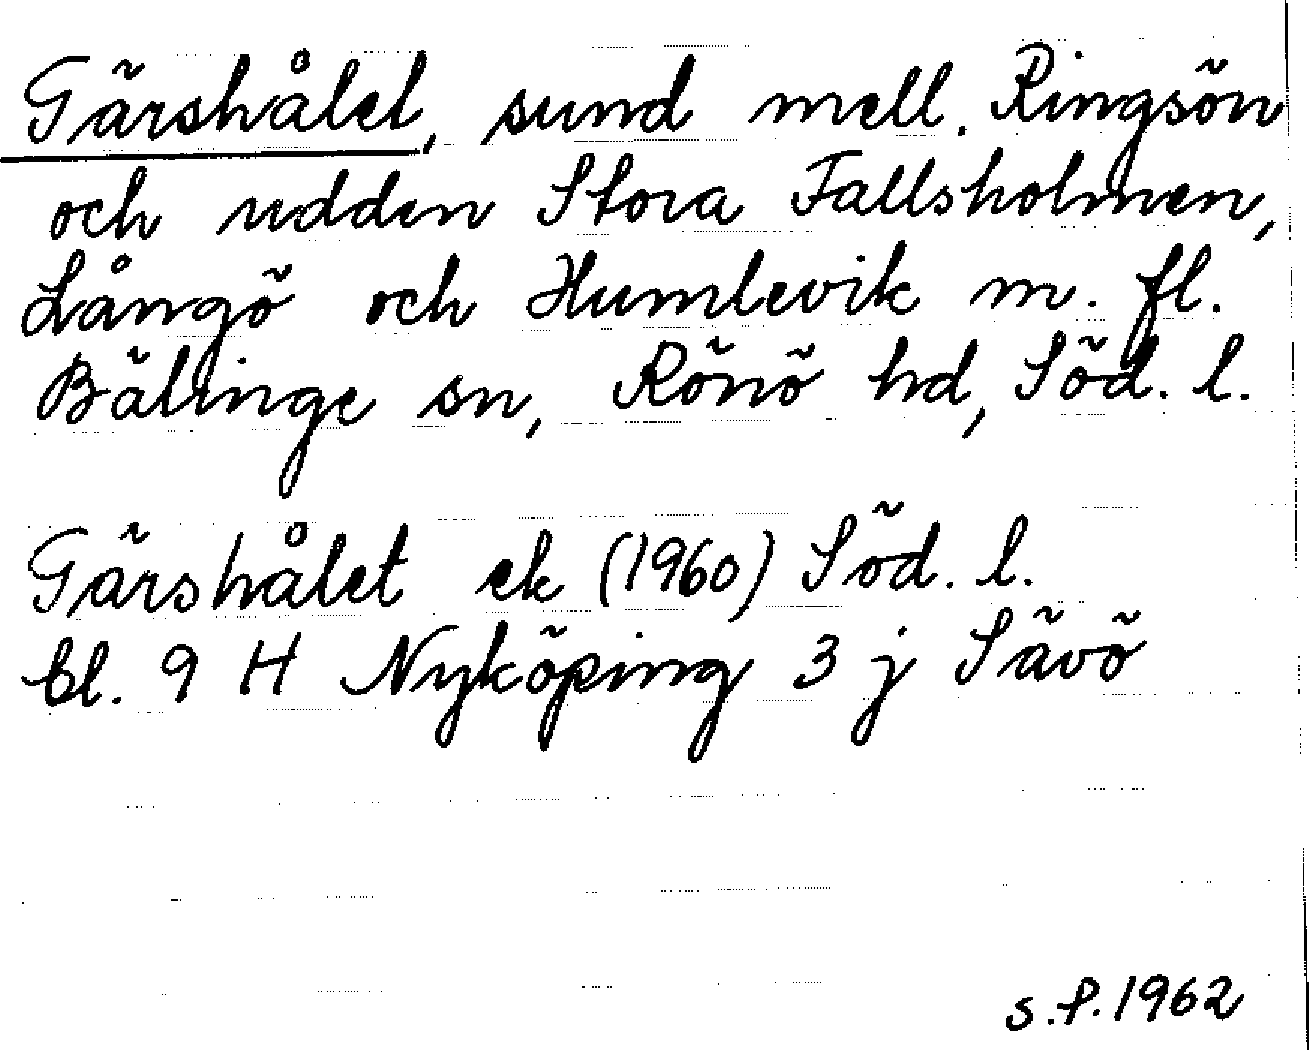 Gärshålet, sund mell. Ringsön
och udden Stora Fallsholmen,
Långö och Humlevik m. fl.
Bälinge sn, Rönö hd, Söd. l.
Gärshålet ek (1960) Söd. l.
bl. 9 H Nyköping 3 j Sävö
s.f. 1962